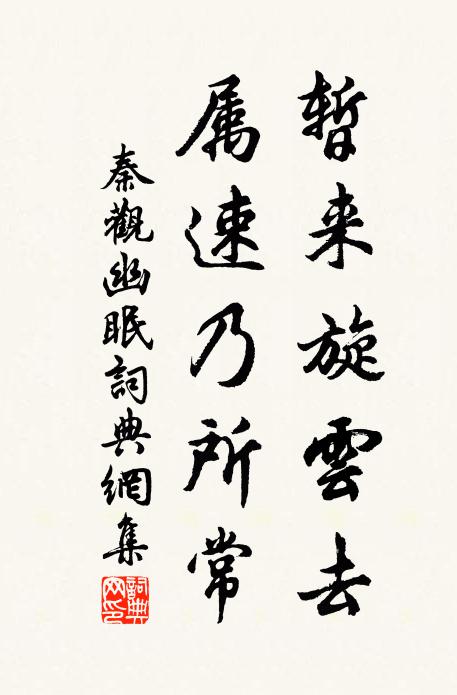 暫来旋雲去
属速乃所常
秦觀幽眠詞典網集
詞典网印